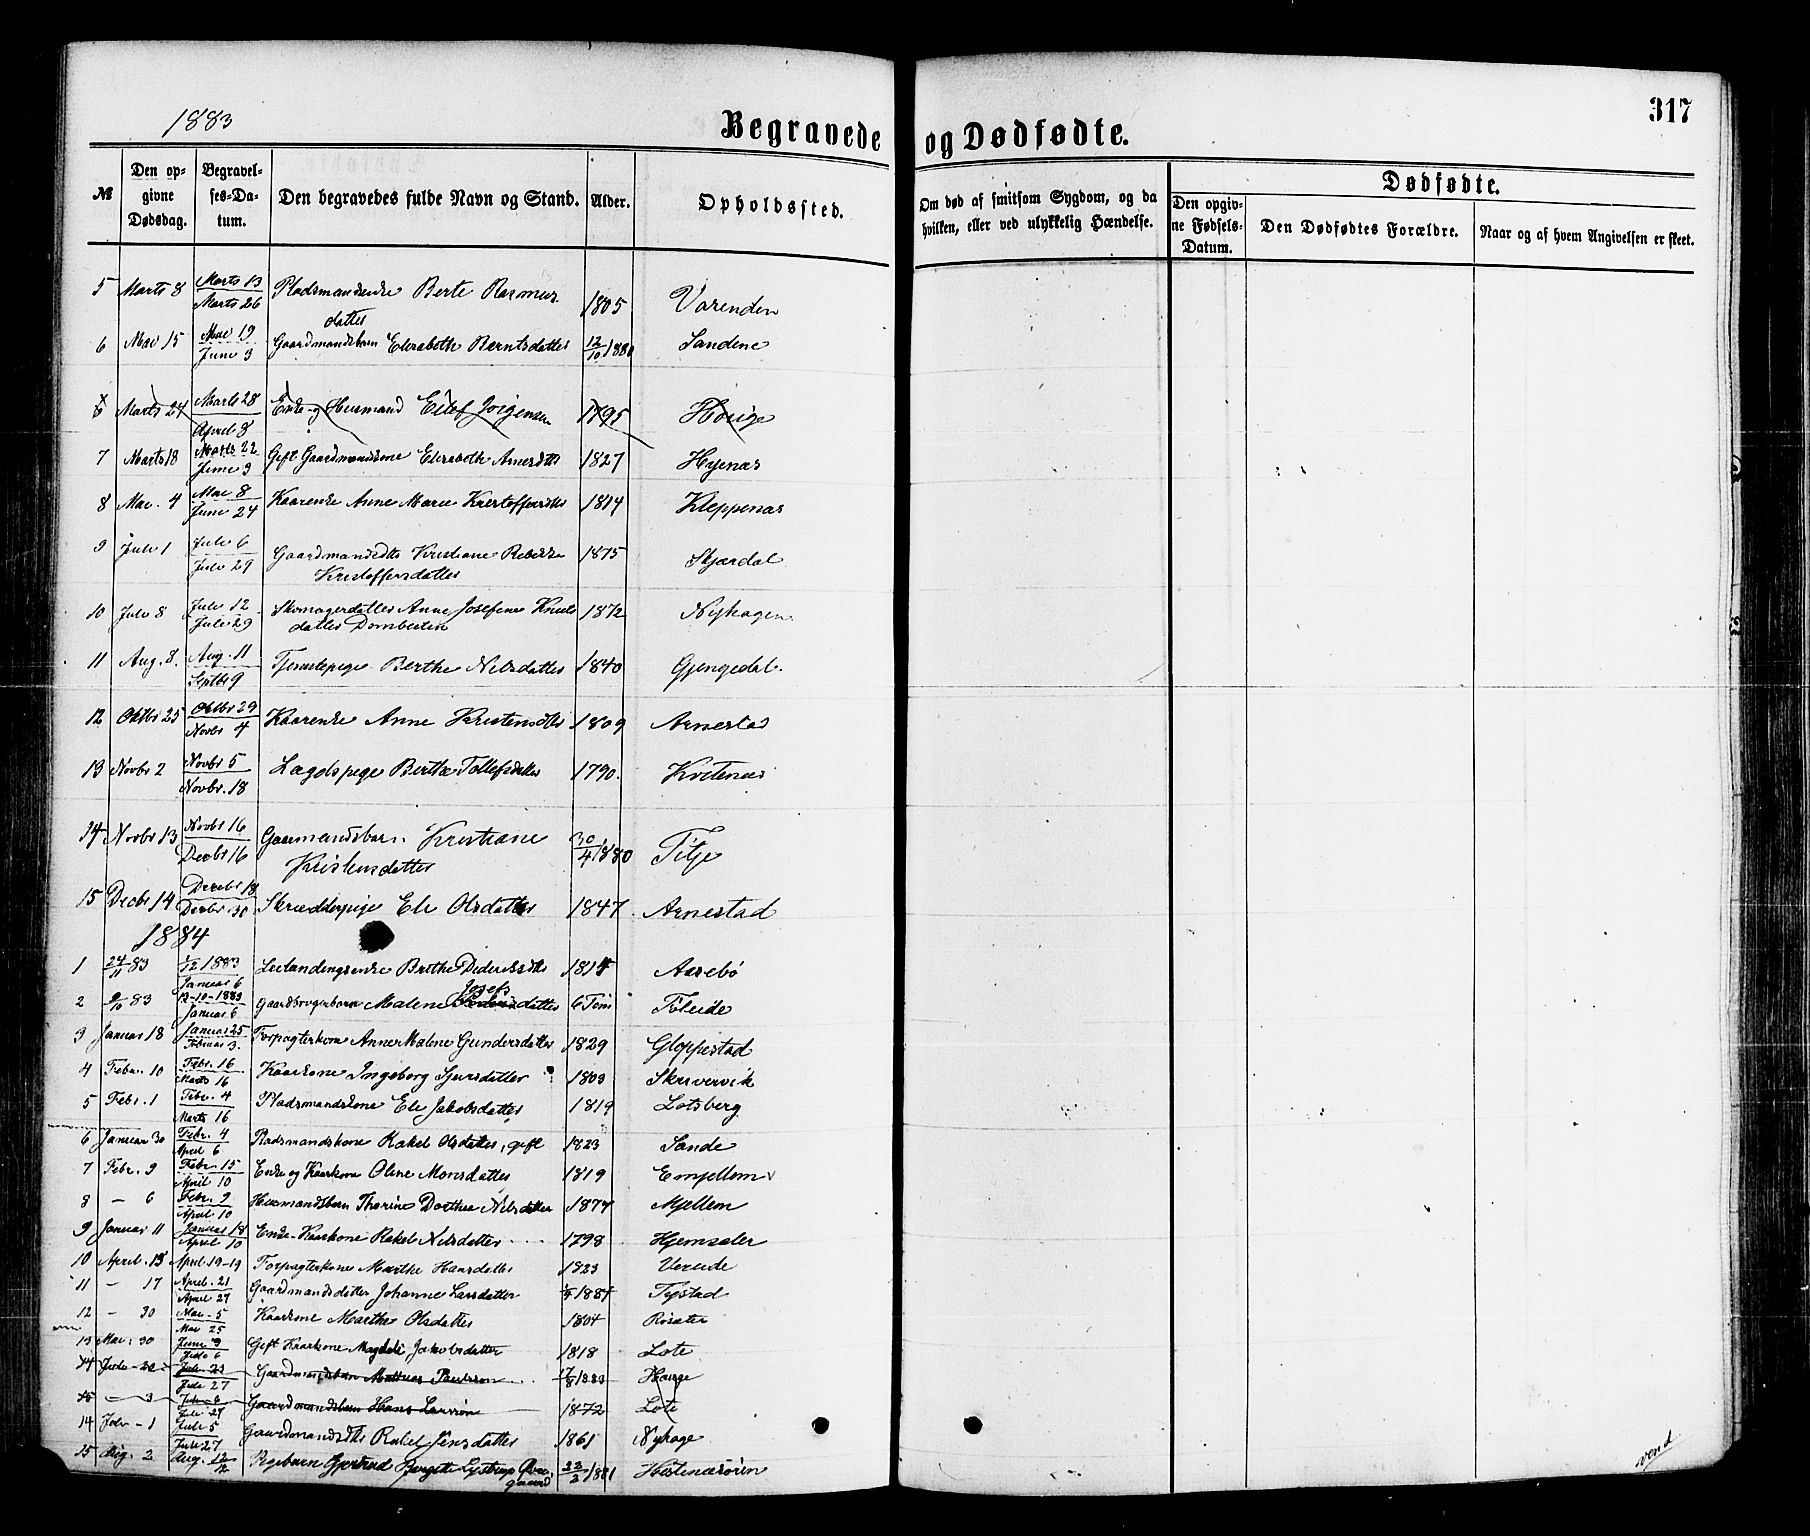 1883
Begravede og Dødfødte.
317
№ Den opgivne Dødsdag. Begravelses-Datum. Den begravedes fulde Navn og Stand. Alder. Opholdssted. Om død af smitsom Sygdom, og da hvilken, eller ved ulykkelig Hændelse. Dødfødte. Den opgivne Fødsels-Datum. Den Dødfødtes Forældre. Naar og af hvem Angivelsen er skeet.
5 Marts 8 Marts 13 Marts 26 Pladsmandsenke Berte Rasmusdatter 1805 Varenden
6 Mai 15 Mai 19 Juni 3 Gaardmandsbarn Elisabeth Berntsdatter 12/10 1880 Sandene
6 Marts 24 Marts 28 April 8 Enke- og Husmand Eilef Jørgensen 1795 Hauge
7 Marts 18 Marts 22 Juni 3 Gift Gaardmandskone Elisabeth Arnesdtr 1827 Hyenæs
8 Mai. 4 Mai 8 Juni 24 Kaarenke Anne Marie Kristoffersdtr 1814 Kleppenæs
9 Juli 1 Juli 6 Juli 29 Gaardmandsdtr Kristiane Rebekka Kristoffersdatter 1875 Skjærdal
10 Juli 8 Juli 12 Juli 29 Skomagerdatter Anne Josefine Knuts datter Dombesten 1872 Nyhagen
11 Aug. 8. Aug. 11 Septbr 9 Tjenestepige Berthe Nelsdatter 1840 Gjengedal.
12 Oktbr 25 Oktbr 29 Novbr 4 Kaarenke Anne Kristensdtr 1809 Arnestad
13 Novbr 2 Novbr 5 Novbr. 18 Lægdspige Berthe Tollefsdatter 1790. Kvitenæs
14 Novbr 13 Novbr 16 Decbr 16 Gaarmandsbarn Kristiane Kristensdatter 30/4 1880 Tilje
15 Decbr 14 Decbr 18 Decbr 30 Skrædderpige Eli Olsdatter 1847 Arnestad
1884
1 24/11 83 1/12 1883 Januar 6 Leilændingsenke Berthe Dideriksdtr 1815 Aasebø
2 9/10 83 13-10-1883 Januar 6 Gaardbrugerbarn Malene Josefs datter 6 Tim
3 Januar 18 Januar 25 Februar 3. Forpagterkone Anne Malene Gundersdatter 1829 Gloppestad
4 Febr. 10 Febr. 16 Marts 16 Kaarkone Ingeborg Sjursdatter 1803 Skrivervik
5 Febr. 1 Febr. 4 Marts 16 Pladsmandskone Eli Jakobsdatter 1819 Lotsberg
6 Januar 30 Febr. 4 April 6 Pladsmandskone Rakel Olsdatter, gift 1823 Sande
7 Febr. 9 Febr. 15 April 10 Enke og Kaarkone Oline Monsdatter 1819 Emjellem
8 — 6 Febr. 9 April 10 Husmandsbarn Thorine Dorthea Nilsdatter 1877 Mjellem
9 Januar 11 Januar 18 April 10 Enke-Kaarkone Rakel Nilsdatter 1798 Hjemsæter
10 April. 13 April 19-19 Forpagterkone Marthe Hansdatter 1823 Vereide
11 — 17 April. 21 April 27 Gaardmandsdatter Johanne Larsdatter 1884 Tystad
12 — 30 Mai - 5 Mai 25 Kaarkone Marthe Olsdatter 1804 Risæter
13 Mai. 30 Juni 3 Juli 6 Gift Kaarkone Magdeli Jakobsdatter 1818 Lote
14 Juli - 20 Juli 23 Juli 27 Gaardmandsbarn Mattias Paulsson 17/8 1883 Hauge
15 — 3 Juli 8 Juli 27 Gaardmandsbarn Hans Larsson 1872 Lote
14 Juli - 1 Juli 5 Juli 27 Gaardmandsdtr Rakel Jensdatter 1861 Nyhage
15 Aug. 2 Aug. 12/12 Pigebarn Gjertrud Bergitte Lystrup Overgaard 22/2 1881 Hestenesøren
vend